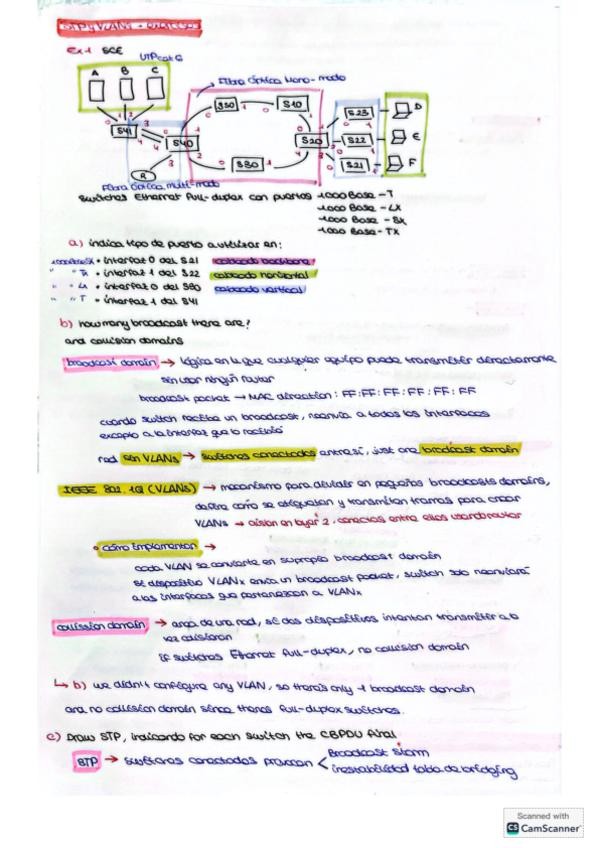 STP y VLANs - ejercicios
Ex 1 SCE
UTP cat 6
Fibra Óptica Mono-modo
A B C
S30 S10
S23 D
S41 S40 S20 S22 E
S21 F
R S80
Fibra Óptica multi-modo
Switches Ethernet Full-duplex con puertos -1000 Base-T
-1000 Base-LX
-1000 Base-SX
-1000 Base-TX
a) indica tipo de puerto a utilizar en:
• interfaz 0 del S21 cableado backbone
" Tx • interfaz 1 del S22 cableado horizontal
" Lx • interfaz 0 del S80 cableado vertical
" T • interfaz 1 del S41
b) how many broadcast there are?
and collision domains
broadcast domain → lógica en la que cualquier equipo puede transmitir directamente
sin usar ningún router
broadcast packet → MAC direction: FF:FF:FF:FF:FF:FF
cuando switch reciba un broadcast, reenvia a todos los interfaces
excepto a la interfaz que lo recibió
red sin VLANs → switches conectados entre si, just one broadcast domain
IEEE 802.1Q (VLANs) → mecanismo para dividir en pequeños broadcasts domains,
define como se etiquetan y transmiten tramas para crear
VLANs → aislon en layer 2, conectas entre ellas usando router
• cómo implementan →
cada VLAN se convierte en su propio broadcast domain
si dispositivo VLANx envia un broadcast packet, switch solo reenviará
a las interfaces que pertenezcan a VLANx
collision domain → area de una red, si dos dispositivos intentan transmitir a la
vez colisionan
if switches Ethernet full-duplex, no collision domain
↳ b) we didn't configure any VLAN, so there's only 1 broadcast domain
and no collision domain since theres full-duplex switches.
c) Draw STP, indicando for each switch the CBPDU final
STP → switches conectados provocan < Broadcast storm
inestabilidad tabla de bridging
Scanned with
CS CamScanner